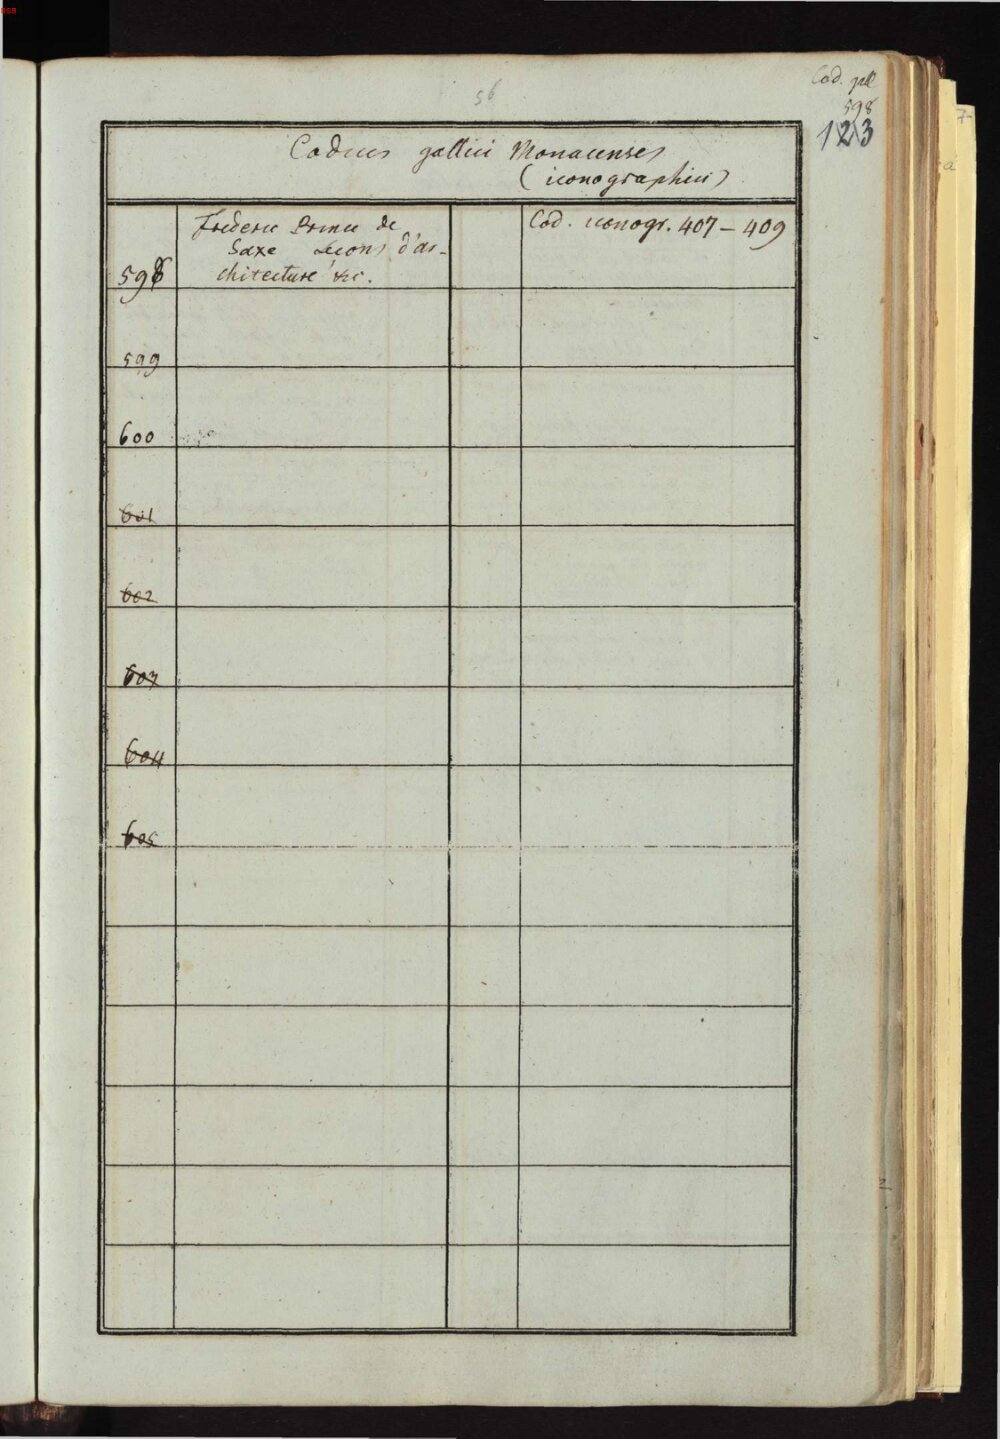 56
Cod. gall
598
123
Codices gallici Monacenses
(iconographici)
598
Frederic Prince de
Saxe Lecons d'ar-
chitecture &c.
Cod. iconogr. 407 – 409
599
600
601
602
603
604
605